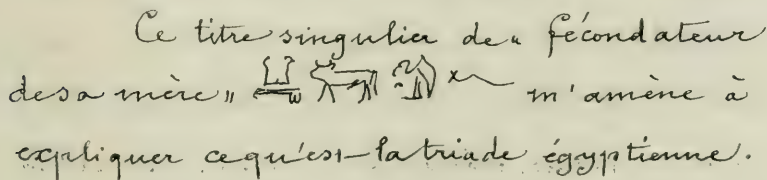 Ce titre singulier de « fécondateur
de sa mère » m'amène à
expliquer ce qu'est la triade égyptienne.